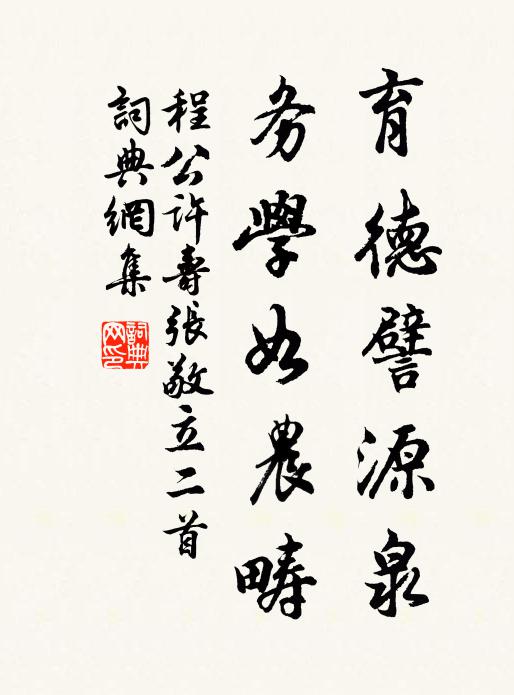 育德譬源泉
務學如農疇
程公許壽張敬立二首
詞典網集
詞典网印